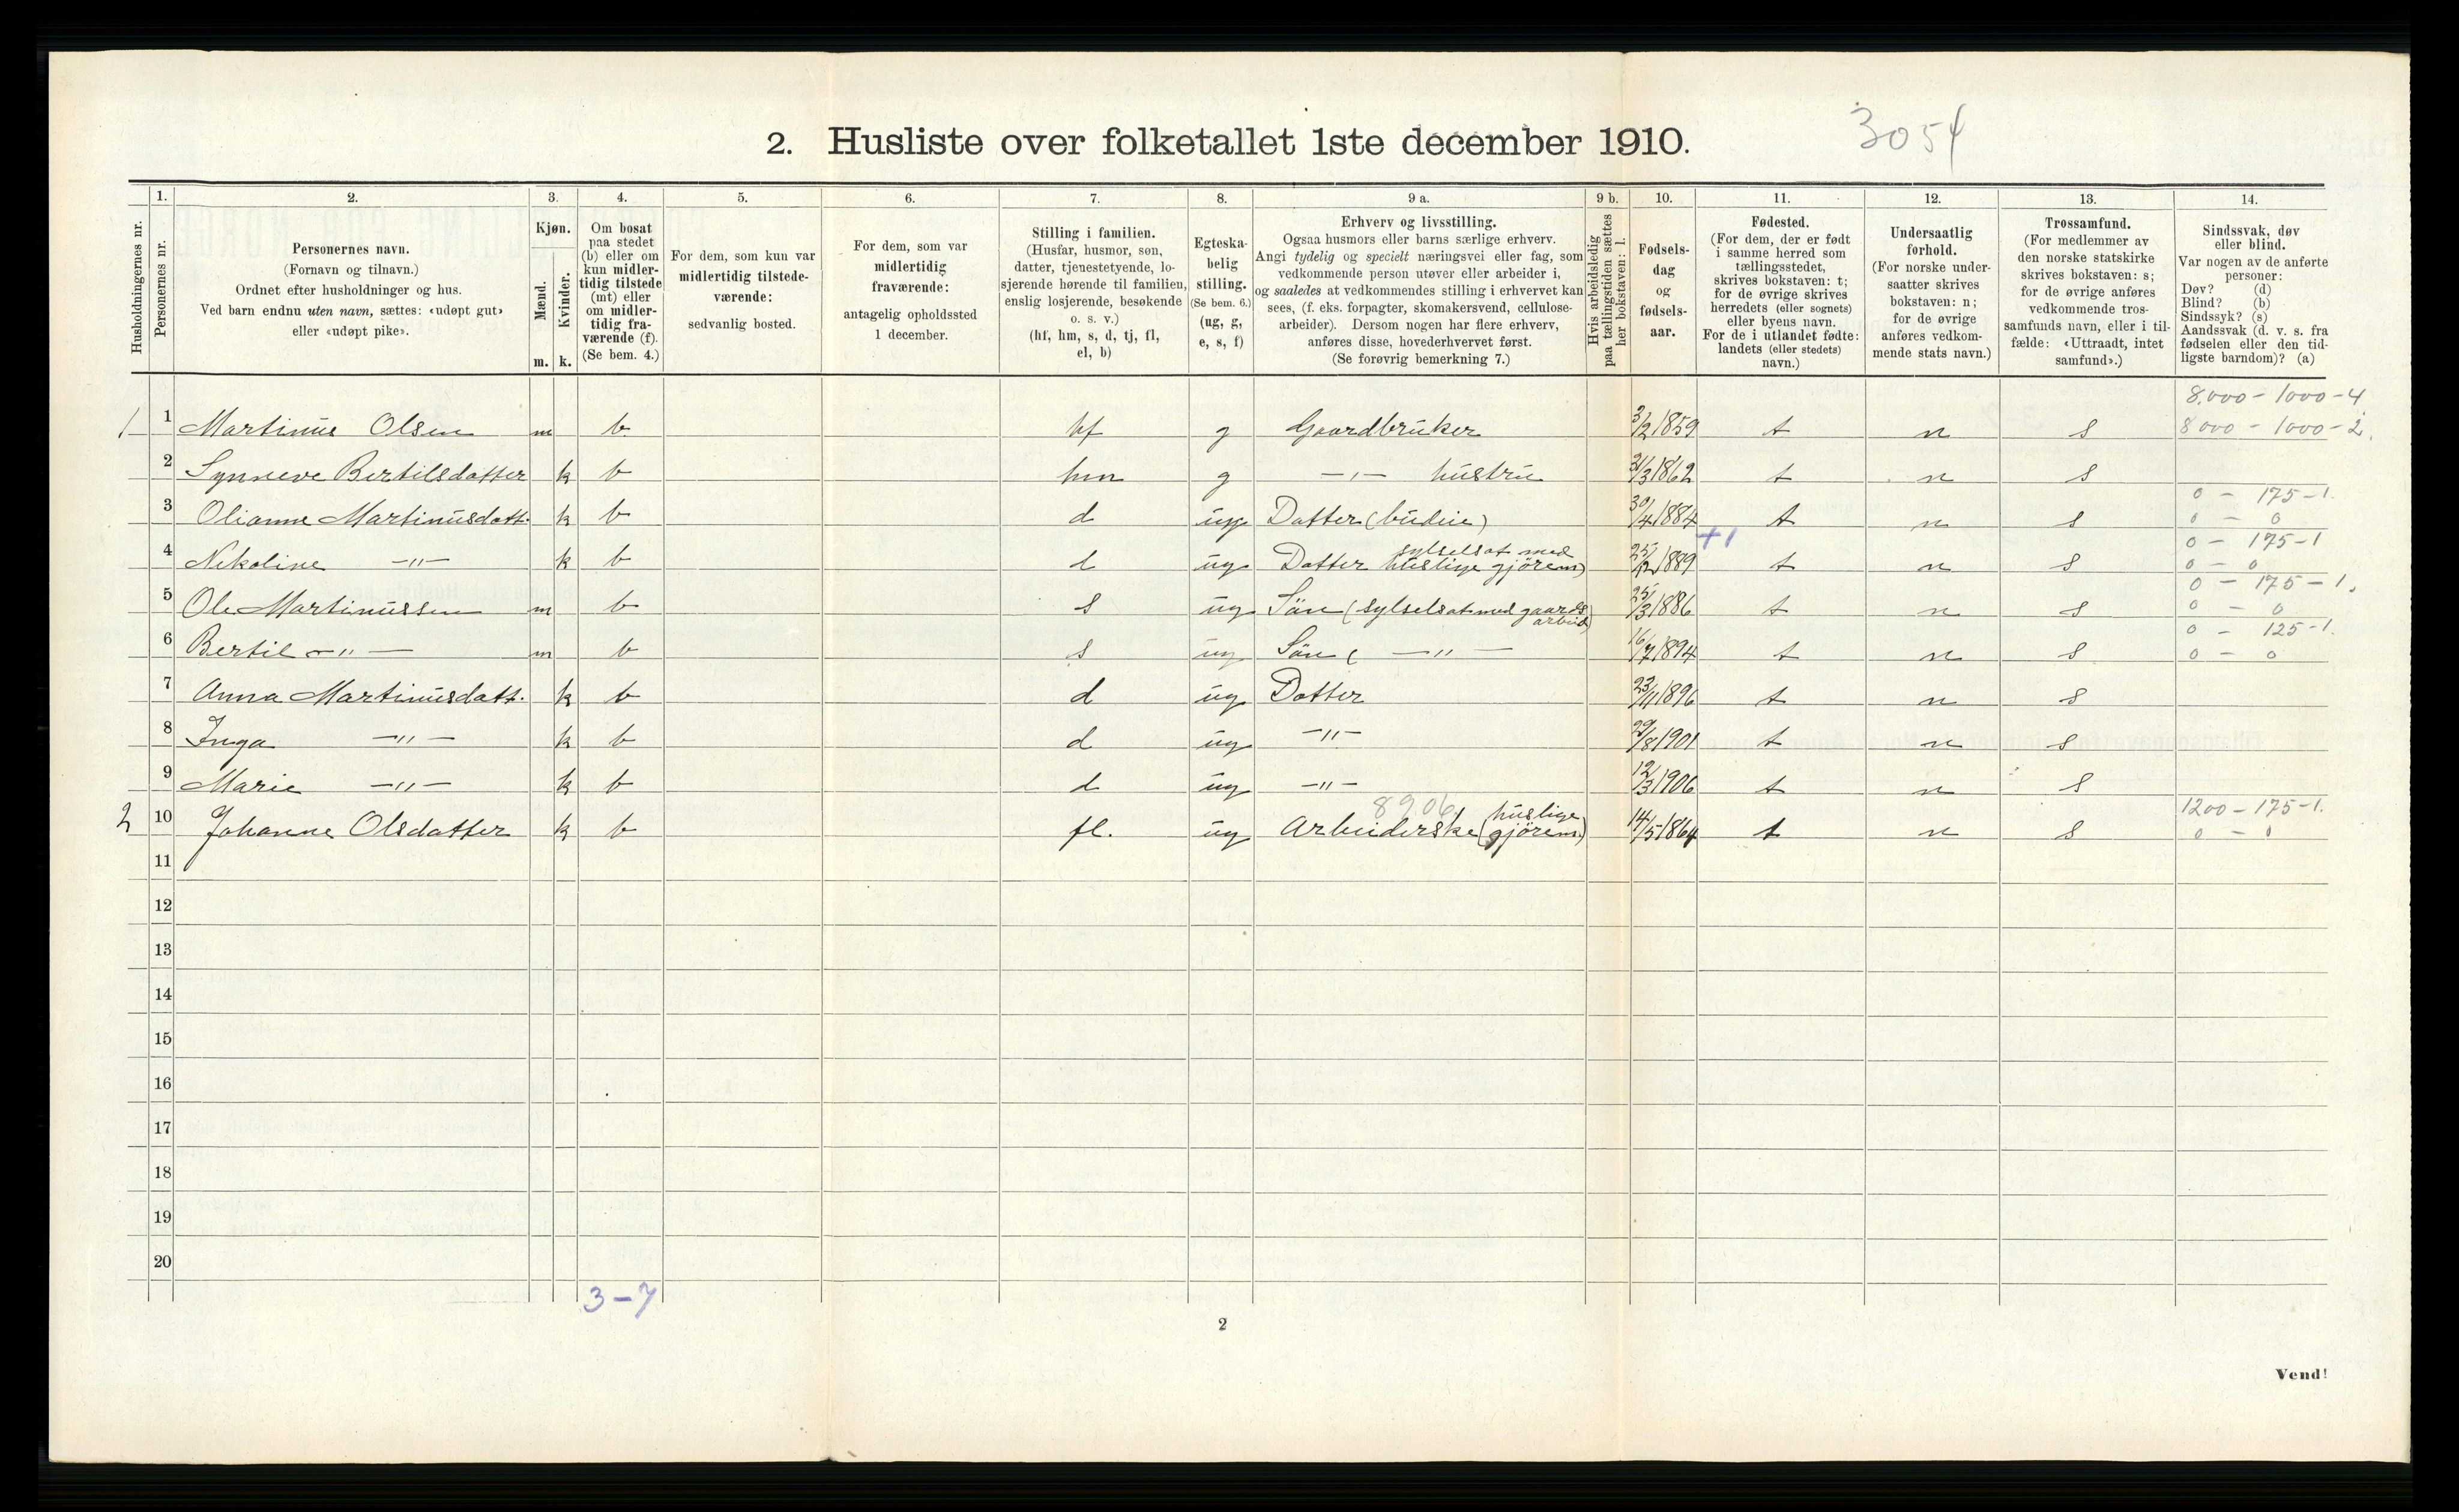 2. Husliste over folketallet 1ste december 1910.
3054
1. 2. 3. 4. 5. 6. 7. 8. 9 a. 9 b. 10. 11. 12. 13. 14.
Husholdningernes nr.
Personernes nr.
Personernes navn.
(Fornavn og tilnavn.)
Ordnet efter husholdninger og hus.
Ved barn endnu uten navn, sættes: «udøpt gut»
eller «udøpt pike».
Kjøn.
Mænd.
Kvinder.
m. k.
Om bosat
paa stedet
(b) eller om
kun midler-
tidig tilstede
(mt) eller
om midler-
tidig fra-
værende (f).
(Se bem. 4.)
For dem, som kun var
midlertidig tilstede-
værende:
sedvanlig bosted.
For dem, som var
midlertidig
fraværende:
antagelig opholdssted
1 december.
Stilling i familien.
(Husfar, husmor, søn,
datter, tjenestetyende, lo-
sjerende hørende til familien,
enslig losjerende, besøkende
o. s. v.)
(hf, hm, s, d, tj, fl,
el, b)
Egteska-
belig
stilling.
(Se bem. 6.)
(ug, g,
e, s, f)
Erhverv og livsstilling.
Ogsaa husmors eller barns særlige erhverv.
Angi tydelig og specielt næringsvei eller fag, som
vedkommende person utøver eller arbeider i,
og saaledes at vedkommendes stilling i erhvervet kan
sees, (f. eks. forpagter, skomakersvend, cellulose-
arbeider). Dersom nogen har flere erhverv,
anføres disse, hovederhvervet først.
(Se forøvrig bemerkning 7.)
Hvis arbeidsledig
paa tællingstiden sættes
her bokstaven: l.
Fødsels-
dag
og
fødsels-
aar.
Fødested.
(For dem, der er født
i samme herred som
tællingsstedet,
skrives bokstaven: t;
for de øvrige skrives
herredets (eller sognets)
eller byens navn.
For de i utlandet fødte:
landets (eller stedets)
navn.)
Undersaatlig
forhold.
(For norske under-
saatter skrives
bokstaven: n;
for de øvrige
anføres vedkom-
mende stats navn.)
Trossamfund.
(For medlemmer av
den norske statskirke
skrives bokstaven: s;
for de øvrige anføres
vedkommende tros-
samfunds navn, eller i til-
fælde: «Uttraadt, intet
samfund».)
Sindssvak, døv
eller blind.
Var nogen av de anførte
personer:
Døv? (d)
Blind? (b)
Sindssyk? (s)
Aandssvak (d. v. s. fra
fødselen eller den tid-
ligste barndom)? (a)
8.000 - 1000 - 4
1 1 Martinus Olsen m b hf g Gaardbruker 3/2 1859 t n s 8000 - 1000 - 2.
2 Synneve Bertilsdatter k b hm g -"- hustru 31/3 1862 t n s
0 - 175 - 1.
3 Olianne Martinusdatt. k b d ug Datter (budeie) 30/4 1884 t n s 0 - 0
+1
0 - 175 - 1
sylselsat med
4 Nikoline -"- k b d ug Datter huslige gjörem) 25/12 1889 t n s 0 - 0
0 - 175 - 1.
5 Ole Martinussen m b s ug Sön (sylselsat med gaards 25/3 1886 t n s 0 - 0
arbeid)
0 - 125 - 1.
6 Bertil -"- m b s ug Sön ( -"- 16/7 1894 t n s 0 - 0
7 Anna Martinusdatt. k b d ug Datter 23/11 1896 t n s
8 Inga -"- k b d ug -"- 29/8 1901 t n s
9 Marie -"- k b d ug -"- 12/3 1906 t n s
8906 huslige 1200 - 175 - 1.
2 10 Johanne Olsdatter k b fl. ug Arbeiderske (gjörem.) 14/5 1864 t n s 0 - 0
11
12
13
14
15
16
17
18
19
20
3 - 7
2
Vend!